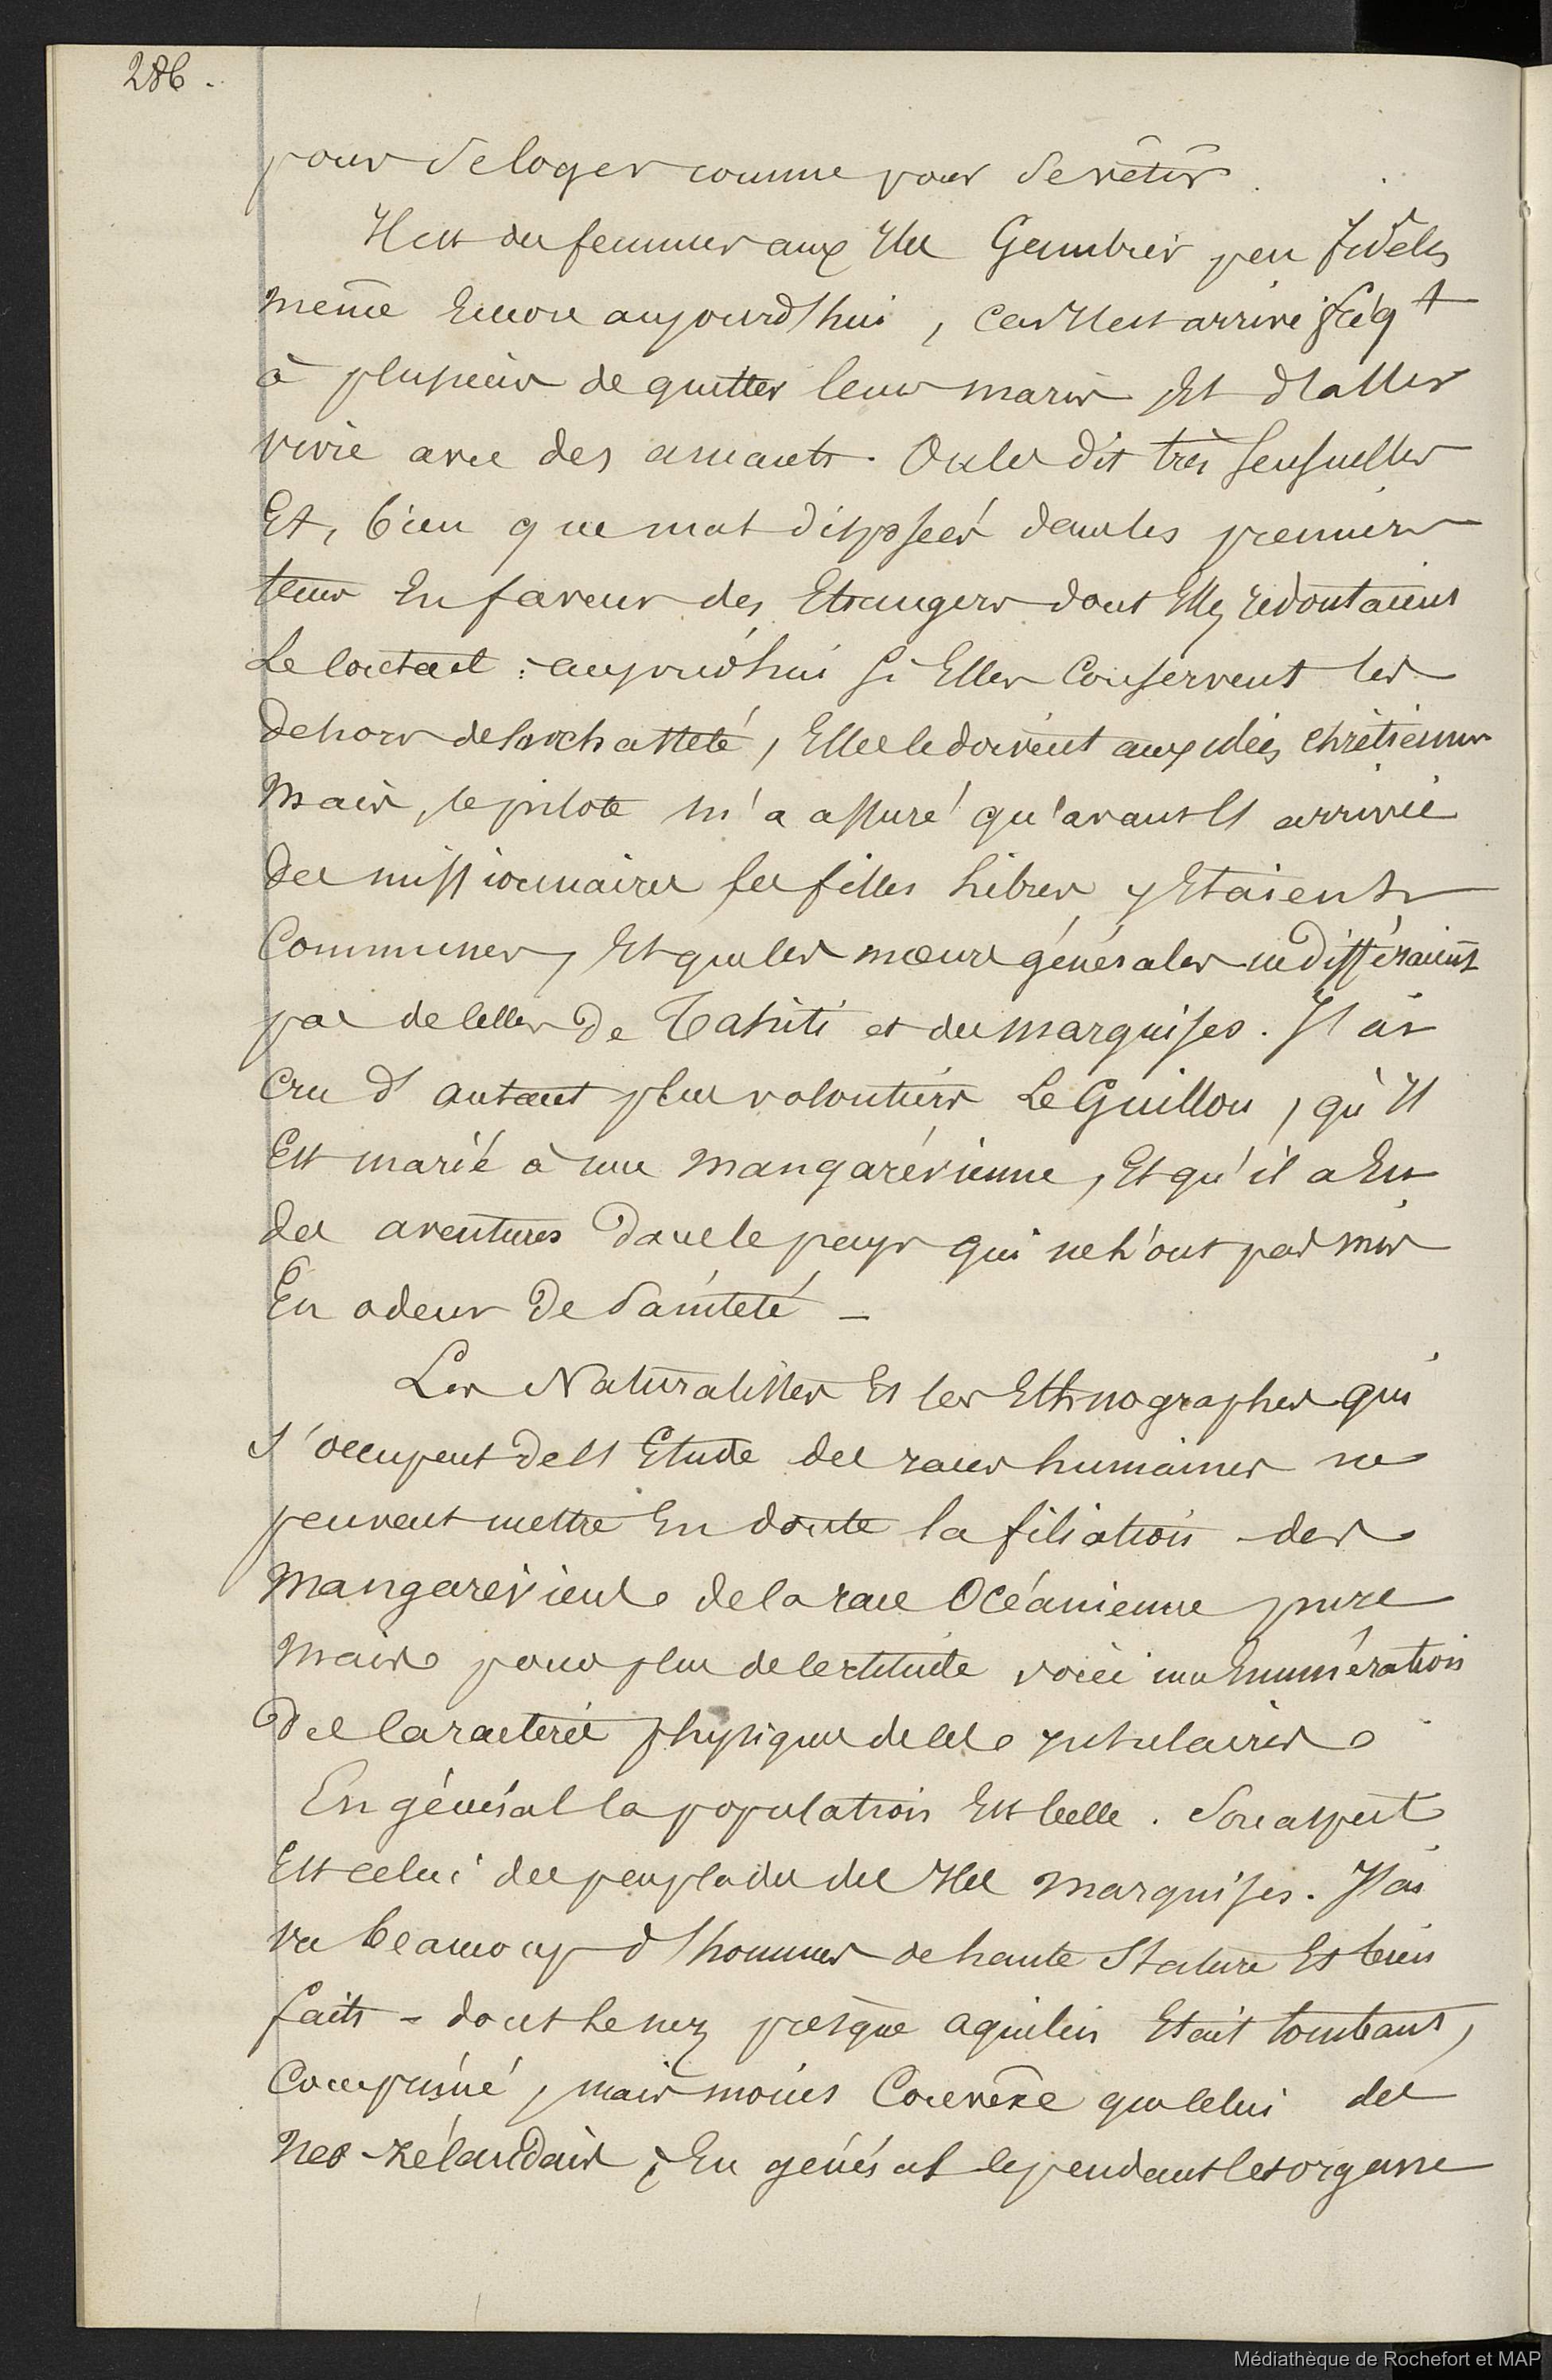 286.
pour se loger comme pour se vêtir.
Il est des femmes aux Iles Gambier peu fidèles
même encore aujourd'hui, car il est arrivé fréqt
à plusieurs de quitter leurs maris et d'aller
vivre avec des amants. On les dit très sensuelles
et, bien que mal disposées dans les premiers
tems en faveur des Etrangers dont elles redoutaient
le contact : aujourd'hui si elles conservent les
dehors de la chasteté, elles le doivent aux idées chrétiennes
mais, le pilote m'a assuré qu'avant l'arrivée
des missionnaires les filles libres y étaient
communes, et que les mœurs générales ne différaient
pas de celles de Tahiti et des marquises. J'ai
cru d'autant plus volontiers Le Guillou, qu'il
est marié à une mangarévienne, et qu'il a eu
des aventures dans le pays qui ne l'ont pas mis
en odeur de sainteté —
Les Naturalistes et les Ethnographes qui
s'occupent de l'Etude des races humaines ne
peuvent mettre en doute la filiation des
mangaréviens de la race Océanienne pure
mais pour plus de certitude voici une énumération
des caractères physiques de ces insulaires
En général la population est belle. Son aspect
est celui des peuplades des Iles marquises. J'ai
vu beaucoup d'hommes de haute stature et bien
faits - dont le nez presque aquilin était tombant,
comprimé, mais moins convexe que celui des
néo-zélandais ; en général cependant cet organe
Médiathèque de Rochefort et MAP